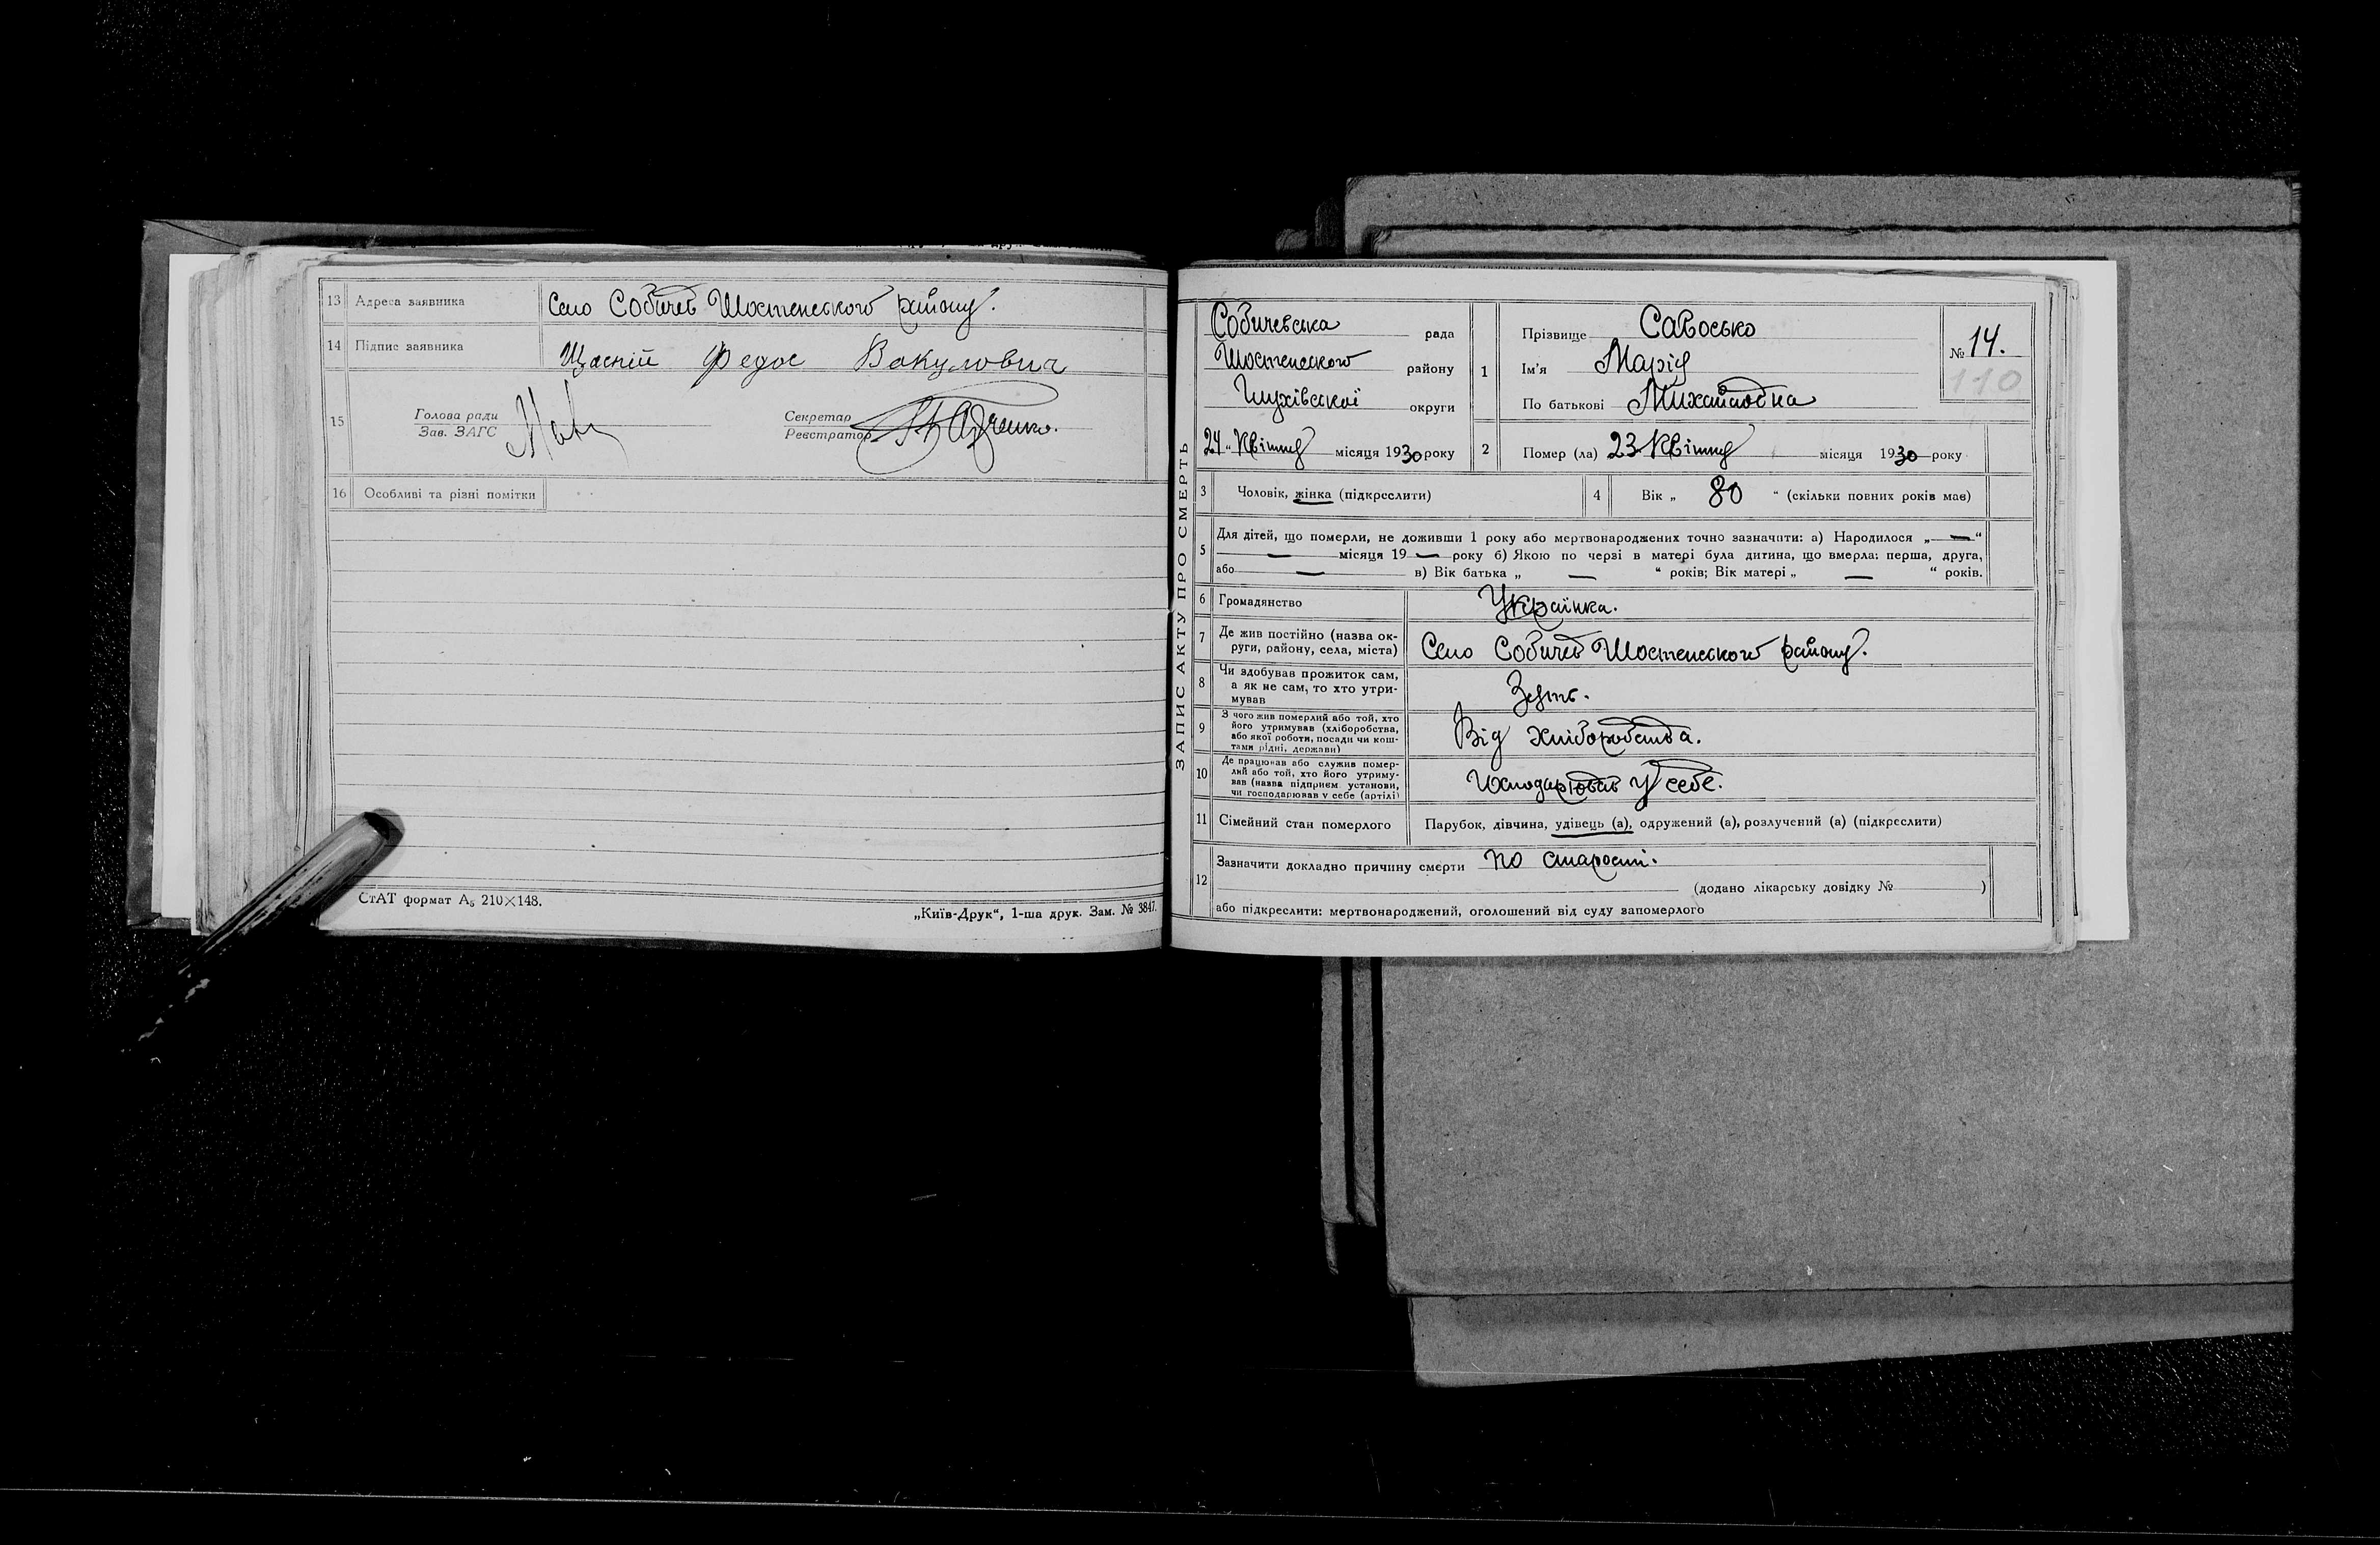 13 Адреса заявника Село Собичев Шостенського району.
14 Підпис заявника Щасній Федос Вакулович
15 Голова ради
Зав. ЗАГС
Секретар
Реєстратор
16 Особливі та різні помітки
СтАТ формат А₅ 210×148.
„Київ-Друк“, 1-ша друк. Зам. № 3847.
ЗАПИС АКТУ ПРО СМЕРТЬ
Собичевська рада
Шостенського району
Глухівської округи
24 „ Квітня місяця 1930 року
1 Прізвище Савосько
Ім'я Марія
По батькові Михайловна
№ 14.
110
2 Помер (ла) 23 Квітня місяця 1930 року
3 Чоловік, жінка (підкреслити)
4 Вік „ 80 “ (скільки повних років мав)
5 Для дітей, що померли, не доживши 1 року або мертвонароджених точно зазначити: а) Народилося „ — “
— місяця 19 — року б) Якою по черзі в матері була дитина, що вмерла: перша, друга,
або — в) Вік батька „ — “ років; Вік матері „ — “ років.
6 Громадянство Українка.
7 Де жив постійно (назва ок-
руги, району, села, міста) Село Собичев Шостенського району.
8 Чи здобував прожиток сам,
а як не сам, то хто утри-
мував Зять.
9 З чого жив померлий або той, хто
його утримував (хліборобства,
або якої роботи, посади чи кош-
тами рідні, держави) Від хліборобства.
10 Де працював або служив помер-
лий або той, хто його утриму-
вав (назва підприєм. установи,
чи господарював у себе (артілі) Господарював у себе.
11 Сімейний стан померлого Парубок, дівчина, удівець (а), одружений (а), розлучений (а) (підкреслити)
12 Зазначити докладно причину смерти по старості.
(додано лікарську довідку № )
або підкреслити: мертвонароджений, оголошений від суду запомерлого